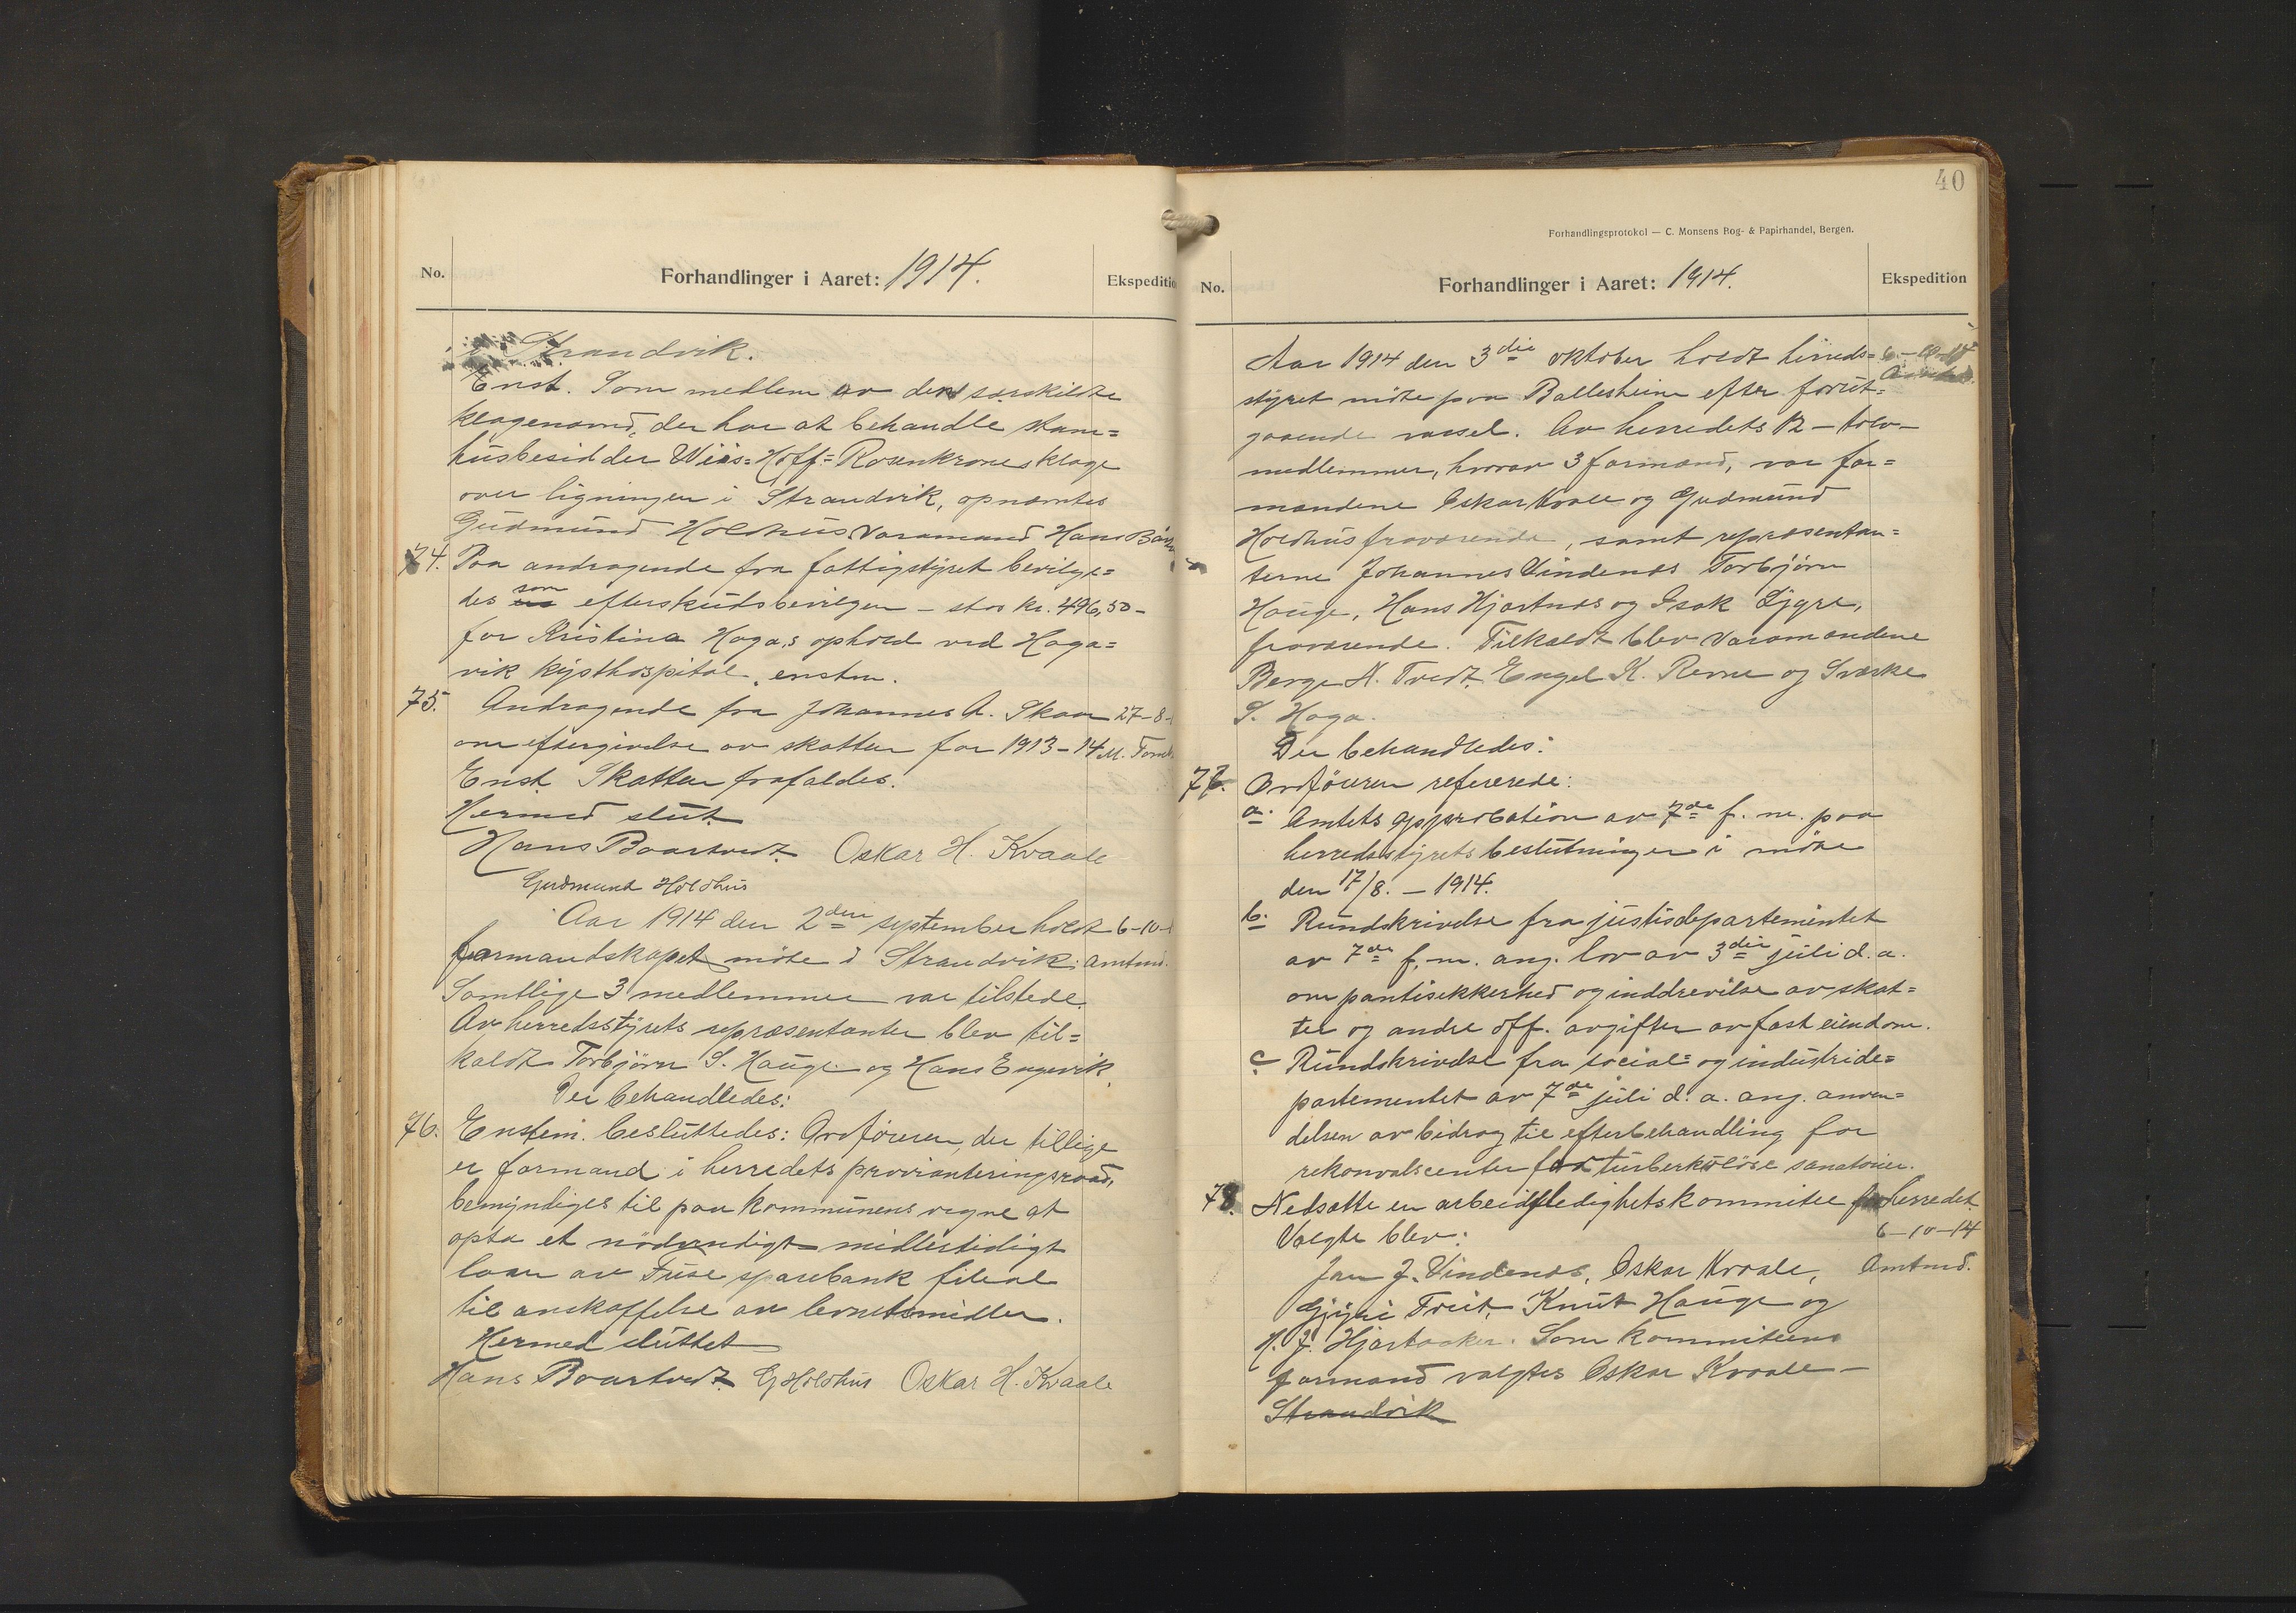 No.
Forhandlinger i Aaret: 1914.
Ekspeditio
i Strandvik.
Enst. Som medlem av den særskilte
klagenemd, der har at behandle stam=
husbesidder Hoff=Rosenkrones klage
over ligningen i Strandvik, opnævntes
Gudmund Holdhus Varamand Hans
74. Paa andragende fra fattigstyret bevilge=
des som efterskudsbevilgen – stor kr. 496,50 –
for Kristina Haga,s ophold ved Haga=
vik kysthospital. enstm.
75. Andragende fra Johannes A. Skaar 27-8-
om eftergivelse av skatten for 1913-14 M.
Enst. Skatten frafaldes.
Hermed slut.
Hans Baartvedt. Oskar H. Kvaale
Gudmund Holdhus
Aar 1914 den 2den september holdt 6-10-
formandskapet møte i Strandvik. Amtmd.
Samtlige 3 medlemmer var tilstede.
Av herredsstyrets repræsentanter blev til=
kaldt Torbjørn S. Hauge og Hans Engevik.
Der behandledes:
76. Enstem. besluttedes: Ordføreren, der tillige
er formand i herredets provianteringsraad,
bemyndiges til paa kommunens vegne at
opta et nødvendigt midlertidigt
laan av Fuse sparebank filial
til anskaffelse av levnetsmidler.
Hermed sluttet
Hans Baartvedt. G Holdhus Oskar H. Kvaale
40
Forhandlingsprotokol — C. Monsens Bog- & Papirhandel, Bergen.
No.
Forhandlinger i Aaret: 1914.
Ekspedition
Aar 1914 den 3die oktober holdt herreds= 6-10-14
styret møte paa Ballesheim efter forut=
gaaende varsel. Av herredets 12 – tolv –
medlemmer, hvorav 3 formænd, var for=
mændene Oskar Kvale og Gudmund
Holdhus fraværende, samt repræsentan=
terne Johannes Vindenes Torbjørn
Hauge, Hans Hjartnes og Isak Lygre,
fraværende. Tilkaldt blev varamændene
Berge N. Tvedt, Engel K. Revne og Sværke
S. Haga.
Der behandledes:
77. Ordføreren refererede:
a. Amtets approbation av 7de f. m. paa
herredsstyrets beslutninger i møte
den 17/8. – 1914.
b. Rundskrivelse fra justisdepartementet
av 7de f. m. ang. lov av 3die juli d. a.
om pantisikkerhed og inddrivelse av skat=
ter og andre off. avgifter av fast eiendom.
c. Rundskrivelse fra social= og industride=
partementet av 7de juli d. a. ang. anven=
delsen av bidrag til efterbehandling for
rekonvalscenter fra turberkuløse sanatorier.
78. Nedsatte en arbeidsledighetskommitee for herredet.
Valgte blev: 6-10-14
Jan J. Vindenes, Oskar Kvale, Amtmd.
Knut Hauge og
N. J. Hjartaaker. Som kommiteens
formand valgtes Oskar Kvaale –
Strandvik